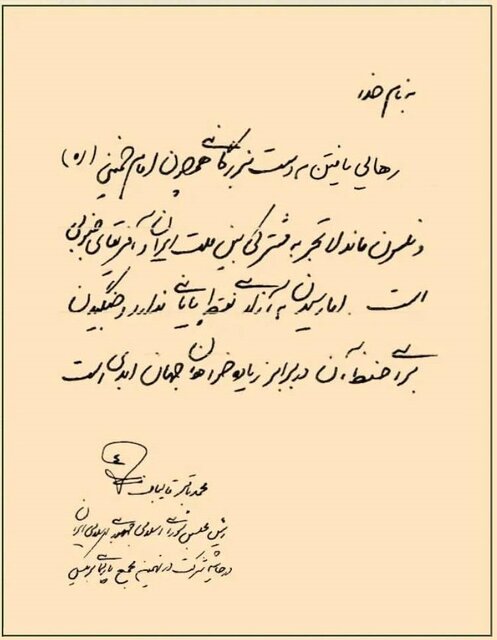 به نام خدا
رهایی یافتن به دست بزرگانی همچون امام خمینی (ره)
و نلسون ماندلا تجربه مشترکی بین ملت ایران و آفریقای جنوبی
است. اما رسیدن به آزادی نقطه پایانی ندارد و جنگیدن
برای حفظ آن در برابر زیاده‌خواهان جهان ابدی است
محمدباقر قالیباف
رئیس مجلس شورای اسلامی جمهوری اسلامی ایران
در حاشیه شرکت در نهمین مجمع پارلمانی بریکس